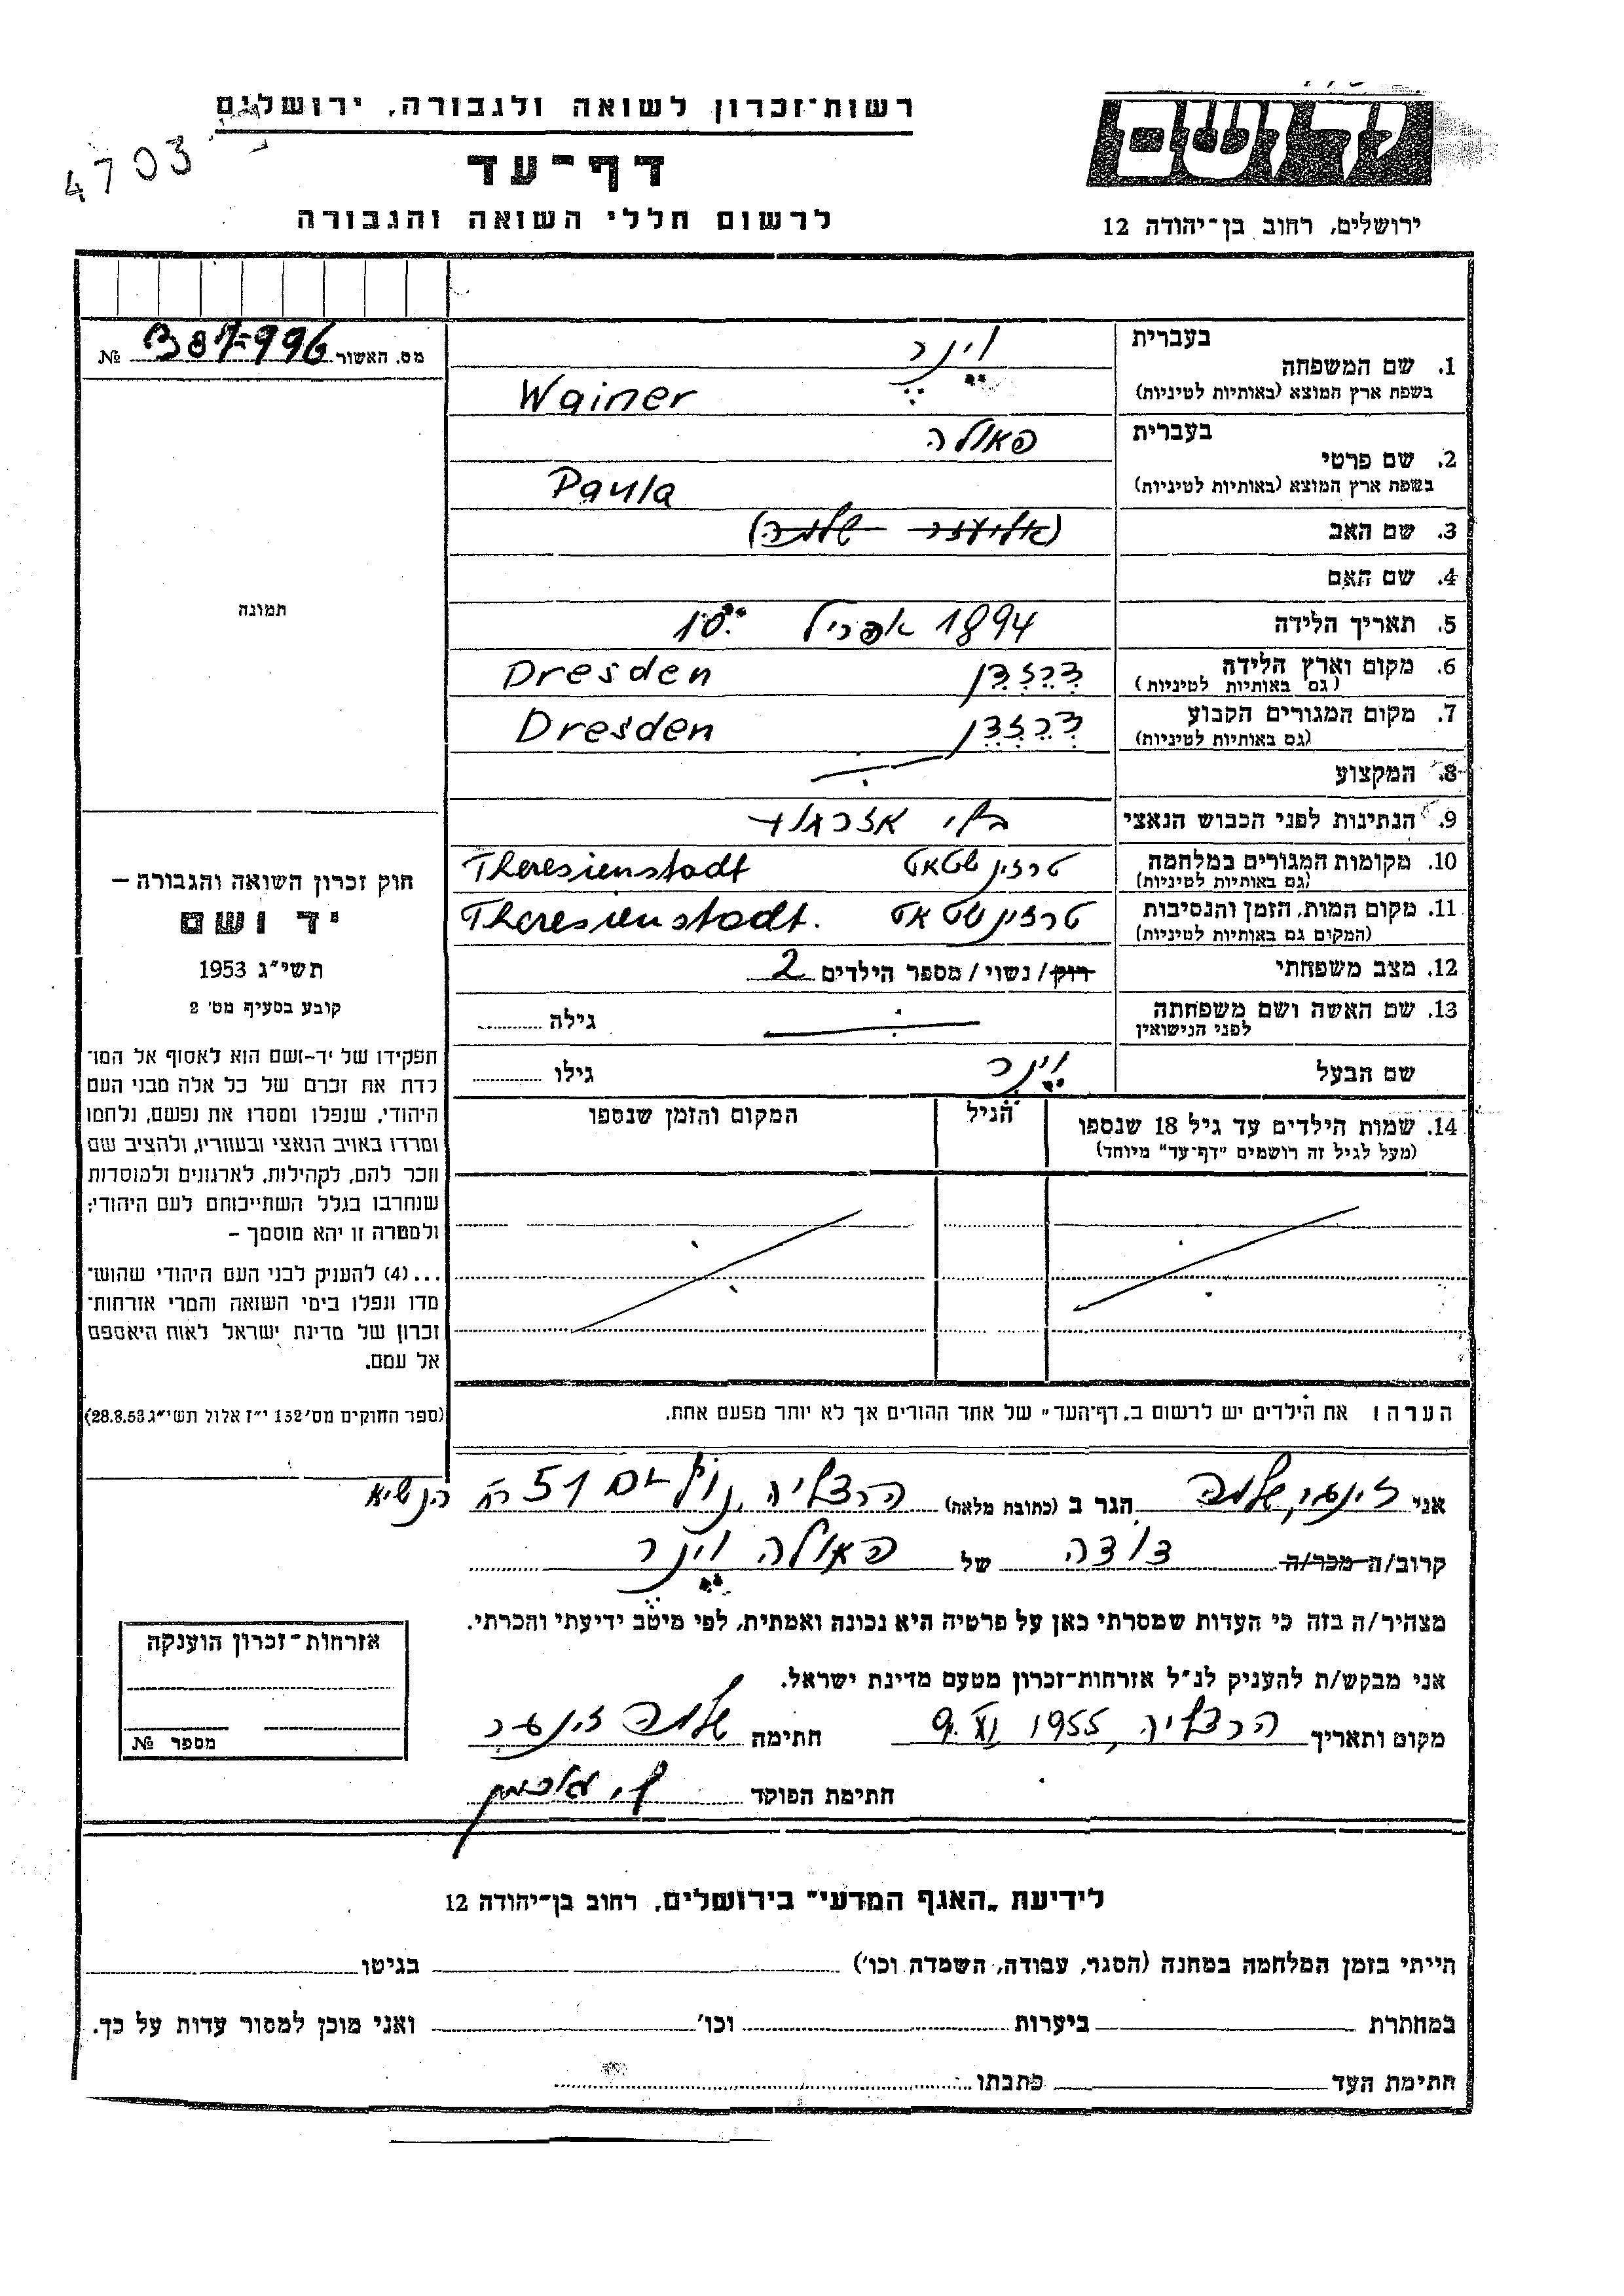 יד ושם
ירושלים, רחוב בן־יהודה 12
רשות־זכרון לשואה ולגבורה, ירושלים
דף־עד
לרשום חללי השואה והגבורה
4703
מס. האשור № 307-996
1. שם המשפחה
בעברית וינר
בשפת ארץ המוצא (באותיות לטיניות) Wainer
2. שם פרטי
בעברית פאולה
בשפת ארץ המוצא (באותיות לטיניות) Paula
3. שם האב (אליעזר שלמה)
4. שם האם
5. תאריך הלידה 1894 אפריל 10.
6. מקום וארץ הלידה דרזדן Dresden
(גם באותיות לטיניות)
7. מקום המגורים הקבוע דרזדן Dresden
(גם באותיות לטיניות)
8. המקצוע
9. הנתינות לפני הכבוש הנאצי בלי אזרחות
10. מקומות המגורים במלחמה טרזין שטאט Theresienstadt
(גם באותיות לטיניות)
11. מקום המות, הזמן והנסיבות טרזין שטאט Theresienstadt.
(המקום גם באותיות לטיניות)
12. מצב משפחתי רוק/ נשוי/ מספר הילדים 2
13. שם האשה ושם משפחתה
לפני הנישואין
גילה
שם הבעל וינר גילו
14. שמות הילדים עד גיל 18 שנספו
(מעל לגיל זה רושמים "דף־עד" מיוחד)
הגיל
המקום והזמן שנספו
תמונה
חוק זכרון השואה והגבורה –
יד ושם
תשי"ג 1953
קובע בסעיף מס' 2
תפקידו של יד-ושם הוא לאסוף אל המו־
לדת את זכרם של כל אלה מבני העם
היהודי, שנפלו ומסרו את נפשם, נלחמו
ומרדו באויב הנאצי ובעוזריו, ולהציב שם
וזכר להם, לקהילות, לארגונים ולמוסדות
שנחרבו בגלל השתייכותם לעם היהודי;
ולמטרה זו יהא מוסמך –
...(4) להעניק לבני העם היהודי שהוש־
מדו ונפלו בימי השואה והמרי אזרחות־
זכרון של מדינת ישראל לאות היאספם
אל עמם.
(ספר החוקים מס' 132 י"ז אלול תשי"ג 28.8.53)
הערה: את הילדים יש לרשום ב"דף־העד" של אחד ההורים אך לא יותר מפעם אחת.
אני שלמה הגר ב (כתובת מלאה) הרצליה, 51 רח' הנשיא
קרוב/ה מכר/ה דודה של פאולה וינר
מצהיר/ה בזה כי העדות שמסרתי כאן על פרטיה היא נכונה ואמתית, לפי מיטב ידיעתי והכרתי.
אני מבקש/ת להעניק לנ"ל אזרחות־זכרון מטעם מדינת ישראל.
מקום ותאריך הרצליה, 1955 XI 9. חתימה שלמה
חתימת הפוקד
אזרחות־זכרון הוענקה
מספר №
לידיעת "האגף המדעי" בירושלים, רחוב בן־יהודה 12
הייתי בזמן המלחמה במחנה (הסגר, עבודה, השמדה וכו') בגיטו
במחתרת ביערות וכו' ואני מוכן למסור עדות על כך.
חתימת העד כתבתו